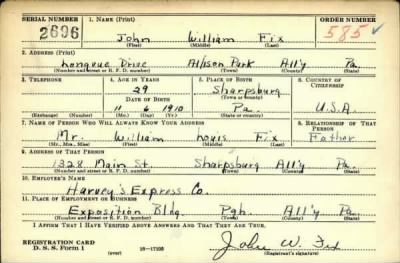 SERIAL NUMBER 1. NAME (Print) ORDER NUMBER
2696 John William Fix 585
(First) (Middle) (Last)
2. ADDRESS (Print)
Longvue Drive Allison Park All'y Pa.
(Number and street or R. F. D. number) (Town) (County) (State)
3. TELEPHONE 4. AGE IN YEARS 5. PLACE OF BIRTH 6. COUNTRY OF CITIZENSHIP
29 Sharpsburg
DATE OF BIRTH (Town or county)
11 6 1910 Pa. U.S.A.
(Exchange) (Number) (Mo.) (Day) (Yr.) (State or country)
7. NAME OF PERSON WHO WILL ALWAYS KNOW YOUR ADDRESS 8. RELATIONSHIP OF THAT PERSON
Mr. William Louis Fix Father
(Mr., Mrs., Miss) (First) (Middle) (Last)
9. ADDRESS OF THAT PERSON
1328 Main St. Sharpsburg All'y Pa.
(Number and street or R. F. D. number) (Town) (County) (State)
10. EMPLOYER'S NAME
Harvey's Express Co.
11. PLACE OF EMPLOYMENT OR BUSINESS
Exposition Bldg. Pgh. All'y Pa.
(Number and street or R. F. D. number) (Town) (County) (State)
I AFFIRM THAT I HAVE VERIFIED ABOVE ANSWERS AND THAT THEY ARE TRUE.
REGISTRATION CARD
D. S. S. Form 1 (over) 16-17105 John W. Fix
(Registrant's signature)